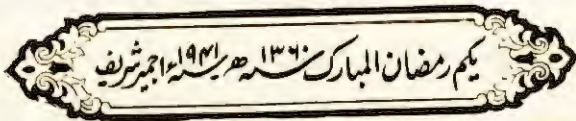 یکم رمضان المبارک ۱۳۶۰ سنہ ھ ۱۹۴۱ سنہ ء اجمیر شریف